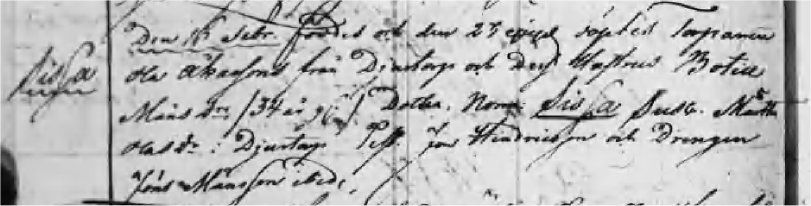 Den 15 Febr. föddes och den 27 ejusd döptes Torparen
Sissa
Ola Åkessons från Djurtorp och dess Hustrus Botill
Måns Dr. /34 år g./ Dotter. Namn Sissa Susc. Märtha
Ols Dr. i Djurtorp Test. Jon Hendricsson och Drengen
Jöns Månsson ibid.